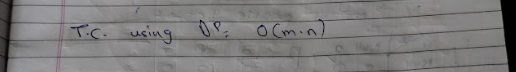 T.C. using DP: O(m·n)